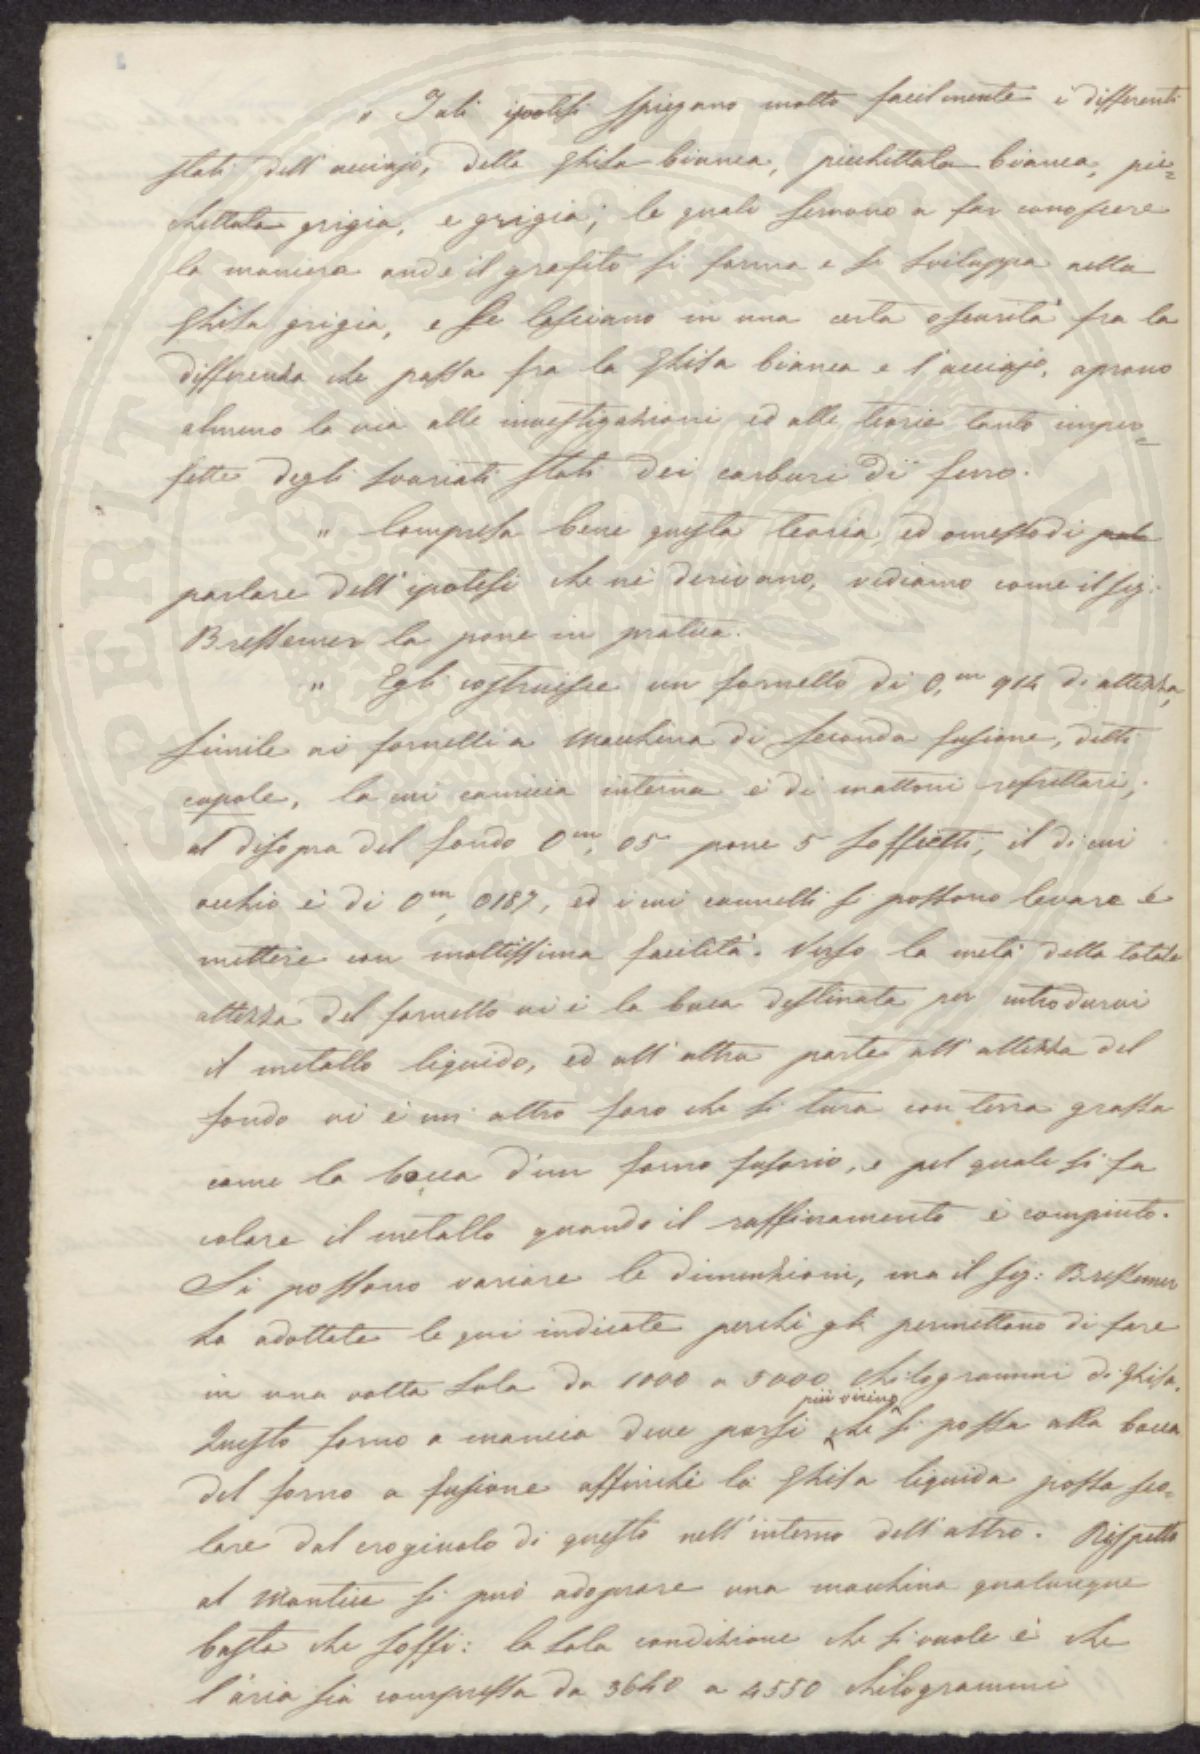 " Tali ipotesi spiegano molto facilmente i differenti
stati dell'acciajo, della ghisa bianca, picchettata bianca, pic=
chettata grigia, e grigia; le quali servono a far conoscere
la maniera onde il grafito si forma e si sviluppa nella
ghisa grigia, e se lasciano in una certa oscurità fra la
differenza che passa fra la ghisa bianca e l'acciajo, aprono
almeno la via alle investigazioni ed alle teorie tanto imper=
fette degli svariati stati dei carburi di ferro.
" Compresa bene questa teoria, ed omesso di
parlare dell'ipotesi che ne derivano, vediamo come il sig:
Bressemer la pone in pratica.
" Egli costruisce un fornello di 0,m 914 di altezza,
simile ai fornelli a macchina di seconda fusione, detti
cupole, la cui camicia interna è di mattoni refrattari;
al disopra del fondo 0m, 05 pone 5 soffietti, il di cui
occhio è di 0m, 0187, ed i cui cannelli si possono levare e
mettere con moltissima facilità. Verso la metà della totale
altezza del fornello vi è la buca destinata per introdurvi
il metallo liquido, ed all'altra parte all'altezza del
fondo vi è un altro foro che si tura con terra grassa
come la bocca d'un forno fusorio, e pel quale si fa
colare il metallo quando il raffinamento è compiuto.
Si possono variare le dimenzioni, ma il sig: Bressemer
ha adottate le qui indicate perchè gli permettono di fare
in una volta sola da 1000 a 5000 chilogrammi di ghisa.
più vicino
Questo forno a manica deve porsi che si possa alla bocca
del forno a fusione affinchè la ghisa liquida possa sco=
lare dal crogiuolo di questo nell'interno dell'altro. Rispetto
al mantice si può adoprare una macchina qualunque
basta che soffi: la sola condizione che si vuole è che
l'aria sia compressa da 3640 a 4550 chilogrammi